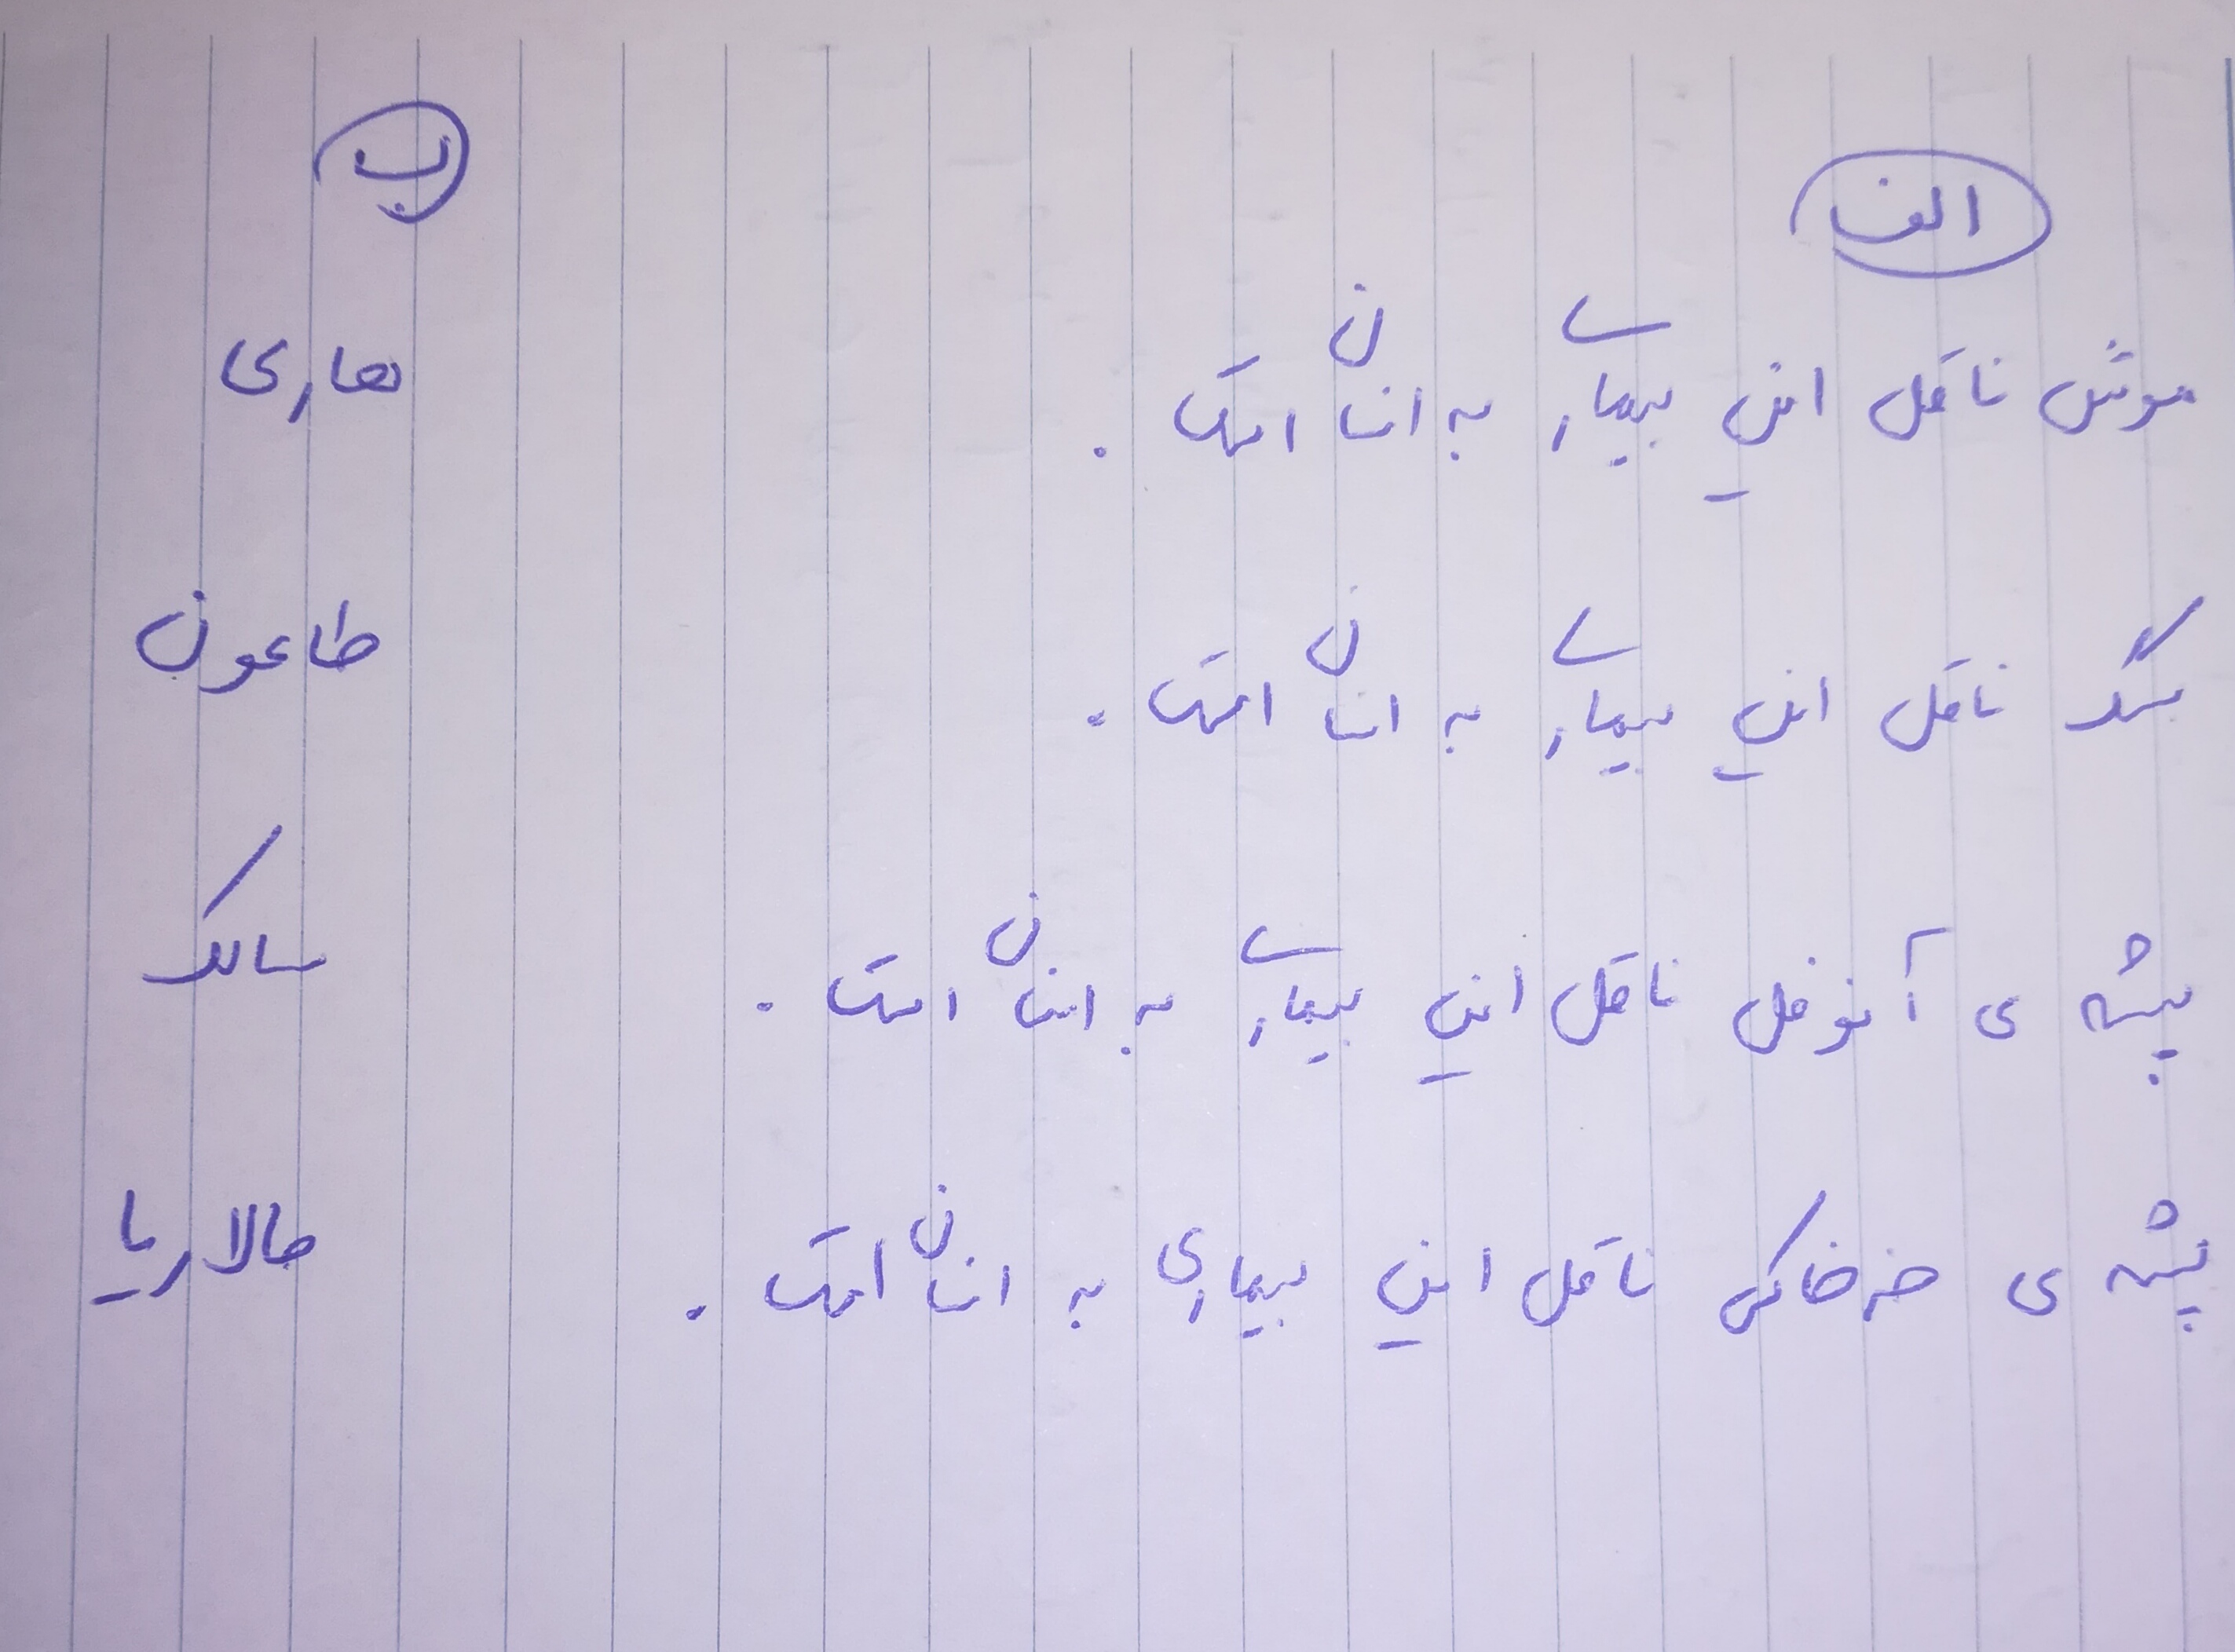 الف
ب
موش ناقل این بیماری به انسان است .
هاری
سگ ناقل این بیماری به انسان است .
طاعون
پشه ی آنوفل ناقل این بیماری به انسان است .
سالک
پشه ی خرخاکی ناقل این بیماری به انسان است .
مالاریا